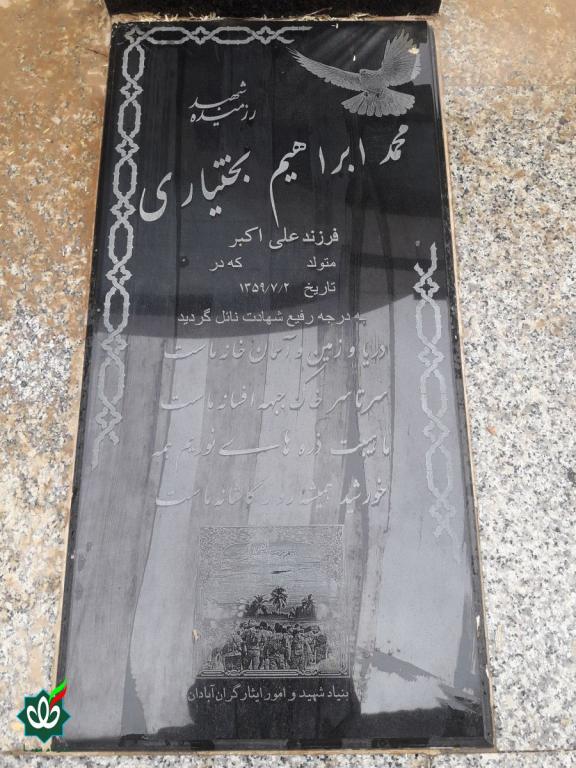 شهید
رزمنده
محمد ابراهیم بختیاری
فرزند علی اکبر
متولد که در
تاریخ ۱۳۵۹/۷/۲
به درجه رفیع شهادت نائل گردید
دریا و زمین و آسمان خانه ماست
سرتاسر جبهه افسانه ماست
ذره های نوریم همه
خورشید همیشه در کاشانه ماست
بنیاد شهید و امور ایثارگران آبادان